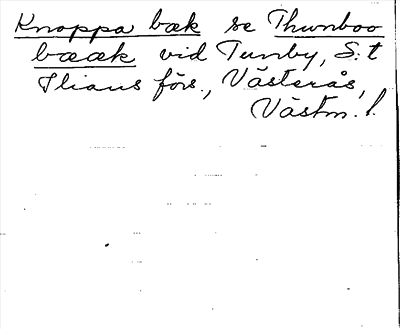 Knoppa bæk se Thunboo
bææk vid Tunby, S:t
Ilians förs., Västerås,
Västm. l.